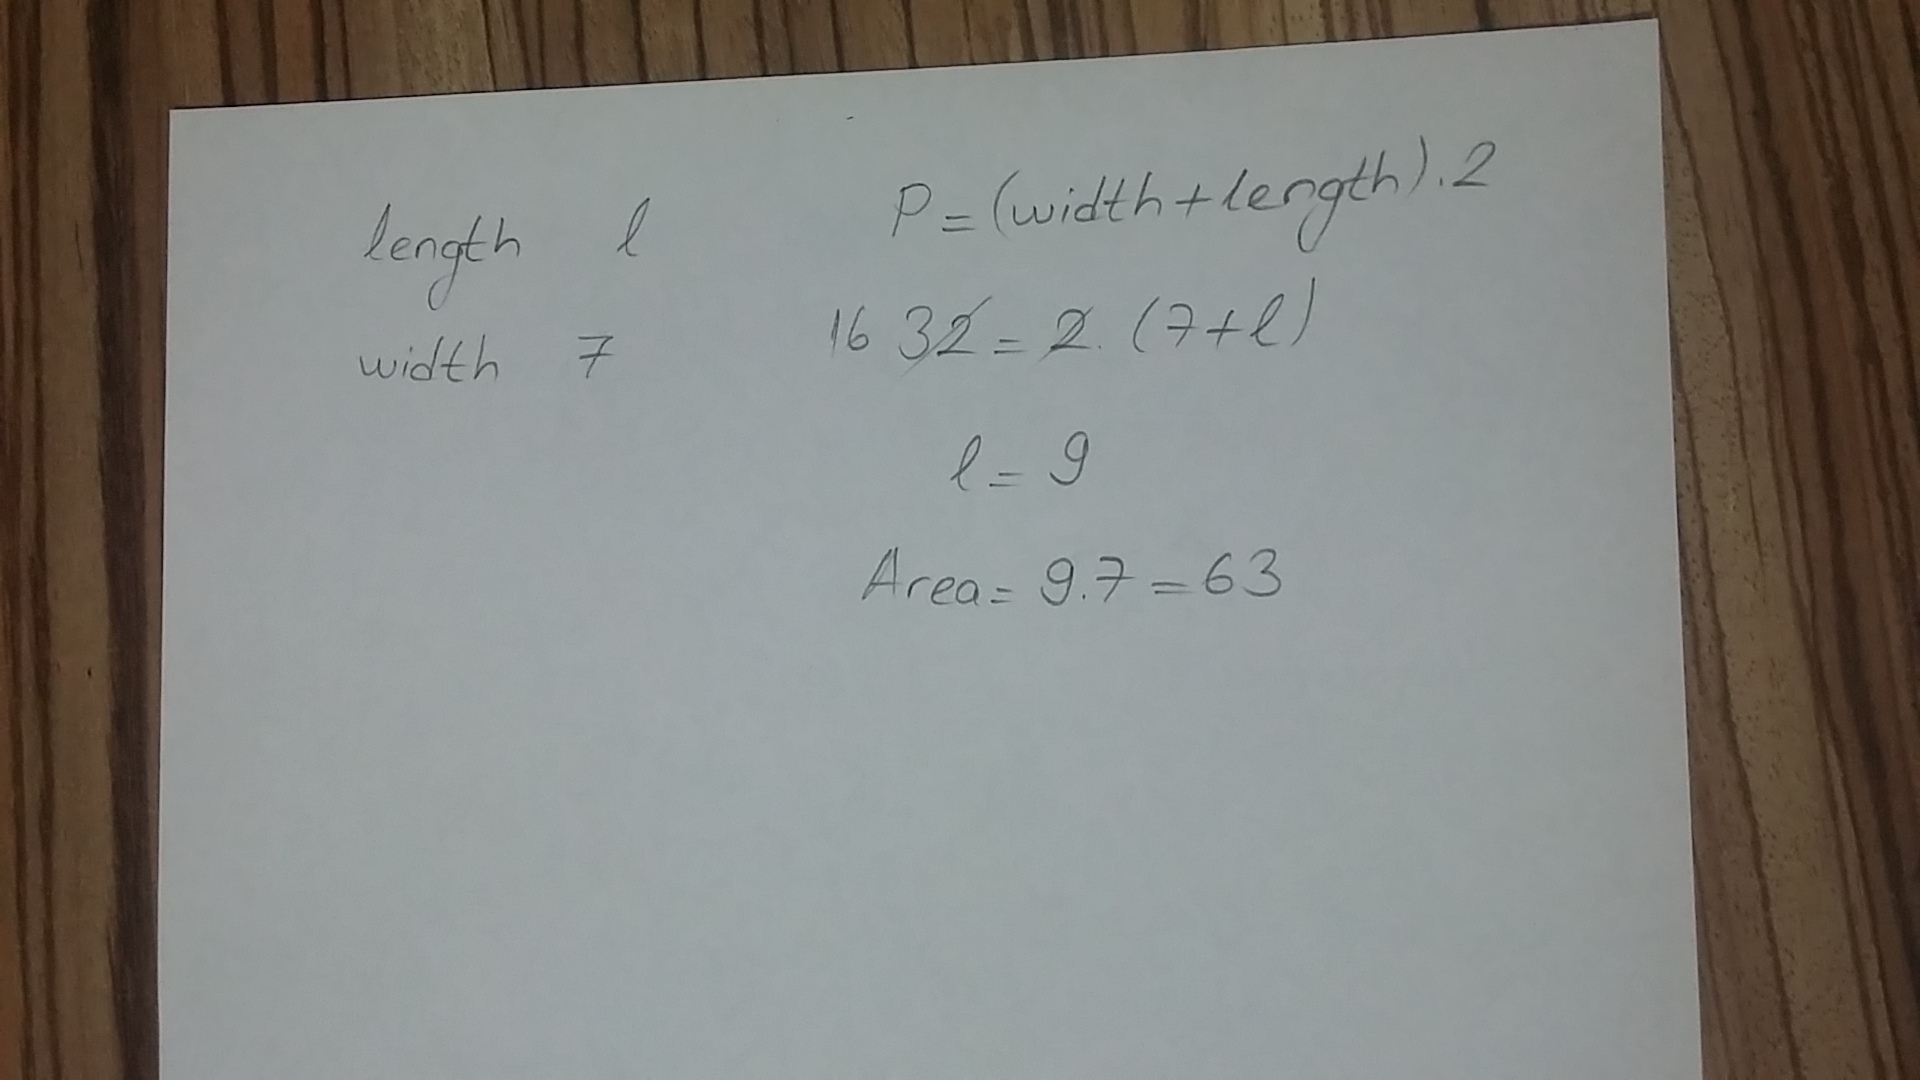 length l
width 7
P = (width + length) . 2
16 32 = 2 . (7 + l)
l = 9
Area = 9 . 7 = 63